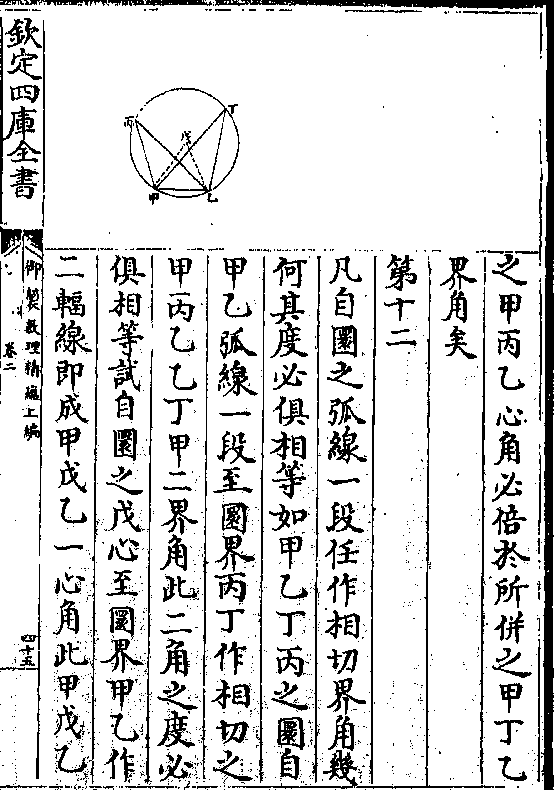 之甲丙乙心角必倍於所併之甲丁乙
界角矣
第十二
凡自圜之弧線一段任作相切界角幾
何其度必俱相等如甲乙丁丙之圜自
甲乙弧線一段至圜界丙丁作相切之
甲丙乙乙丁甲二界角此二角之度必
俱相等試自圜之戊心至圜界甲乙作
二輻線即成甲戊乙一心角此甲戊乙
丁
丙
戊
甲
乙
欽定四庫全書
御製數理精蘊上編
卷二
四十五